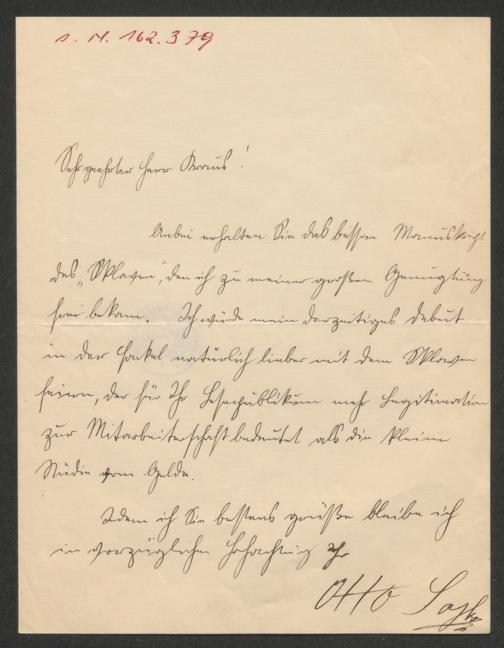 I. N. 162.379
Sehr geehrter Herr Kraus!
Anbei erhalten Sie das bessere Manuskript
des „Sklaven“, den ich zu meiner großen Genugtuung
frei bekam. Ich würde mein derzeitiges Debut
in der Fackel natürlich lieber mit dem Sklaven
feiern, der für Ihr Lesepublikum mehr Legitimation
zur Mitarbeiterschaft bedeutet als die kleine
Studie vom Gelde.
Indem ich Sie bestens grüße bleibe ich
in vorzüglicher Hochachtung Ihr
Otto Soyka